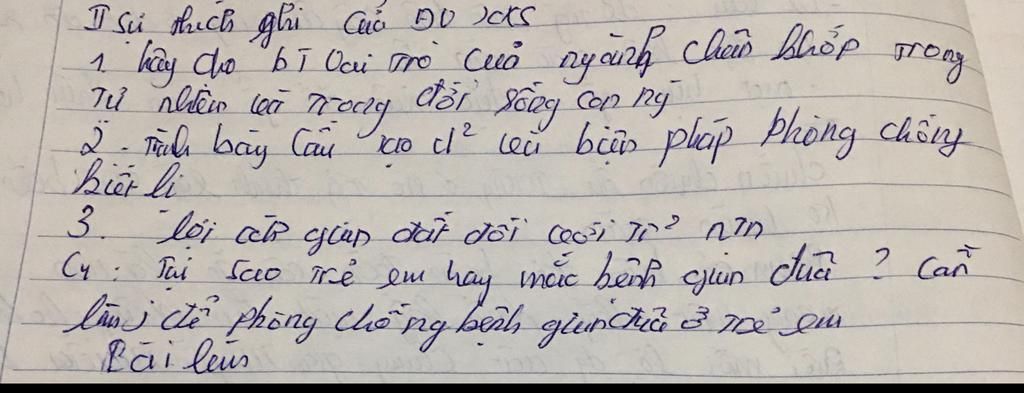 II Sự thích ghi của ĐV XKS
1. hãy cho bĩ vai trò của ngành chân khớp trong
Tự nhiên và trong đời sống con ng
2 - Trình bày cấu tạo d² và biện pháp phòng chống
kiết lị
3. lợi ích giun đất đối với tr² nn
C4: Tại sao trẻ em hay mắc bệnh giun đũa ? Cần
làm j để phòng chống bệnh giun đũa ở trẻ em
Bài làm